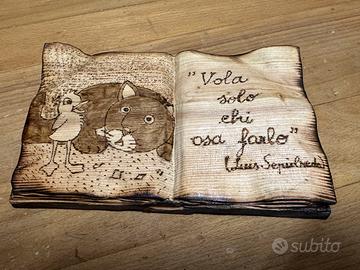 "Vola
solo
chi
osa farlo"
Luis Sepulveda
subito